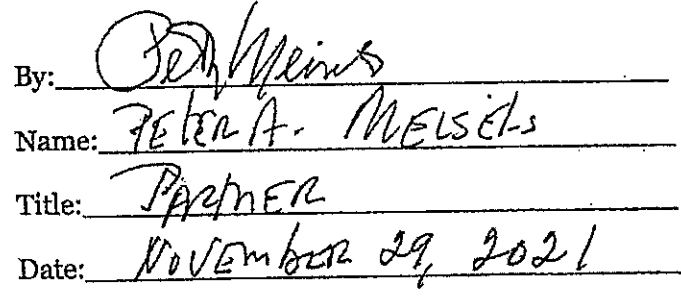 By: Peter Meisels
Name: PETER A. MEISELS
Title: PARTNER
Date: NOVEMBER 29, 2021